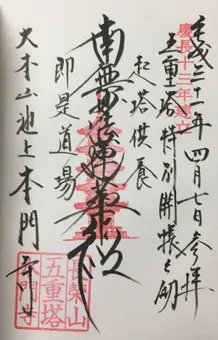 平成三十一年四月七日参拝
慶長十三年建立
五重塔特別開帳之砌
起塔供養
南無妙法蓮華経
即是道場
大本山池上本門寺
長栄山
五重塔
本門寺